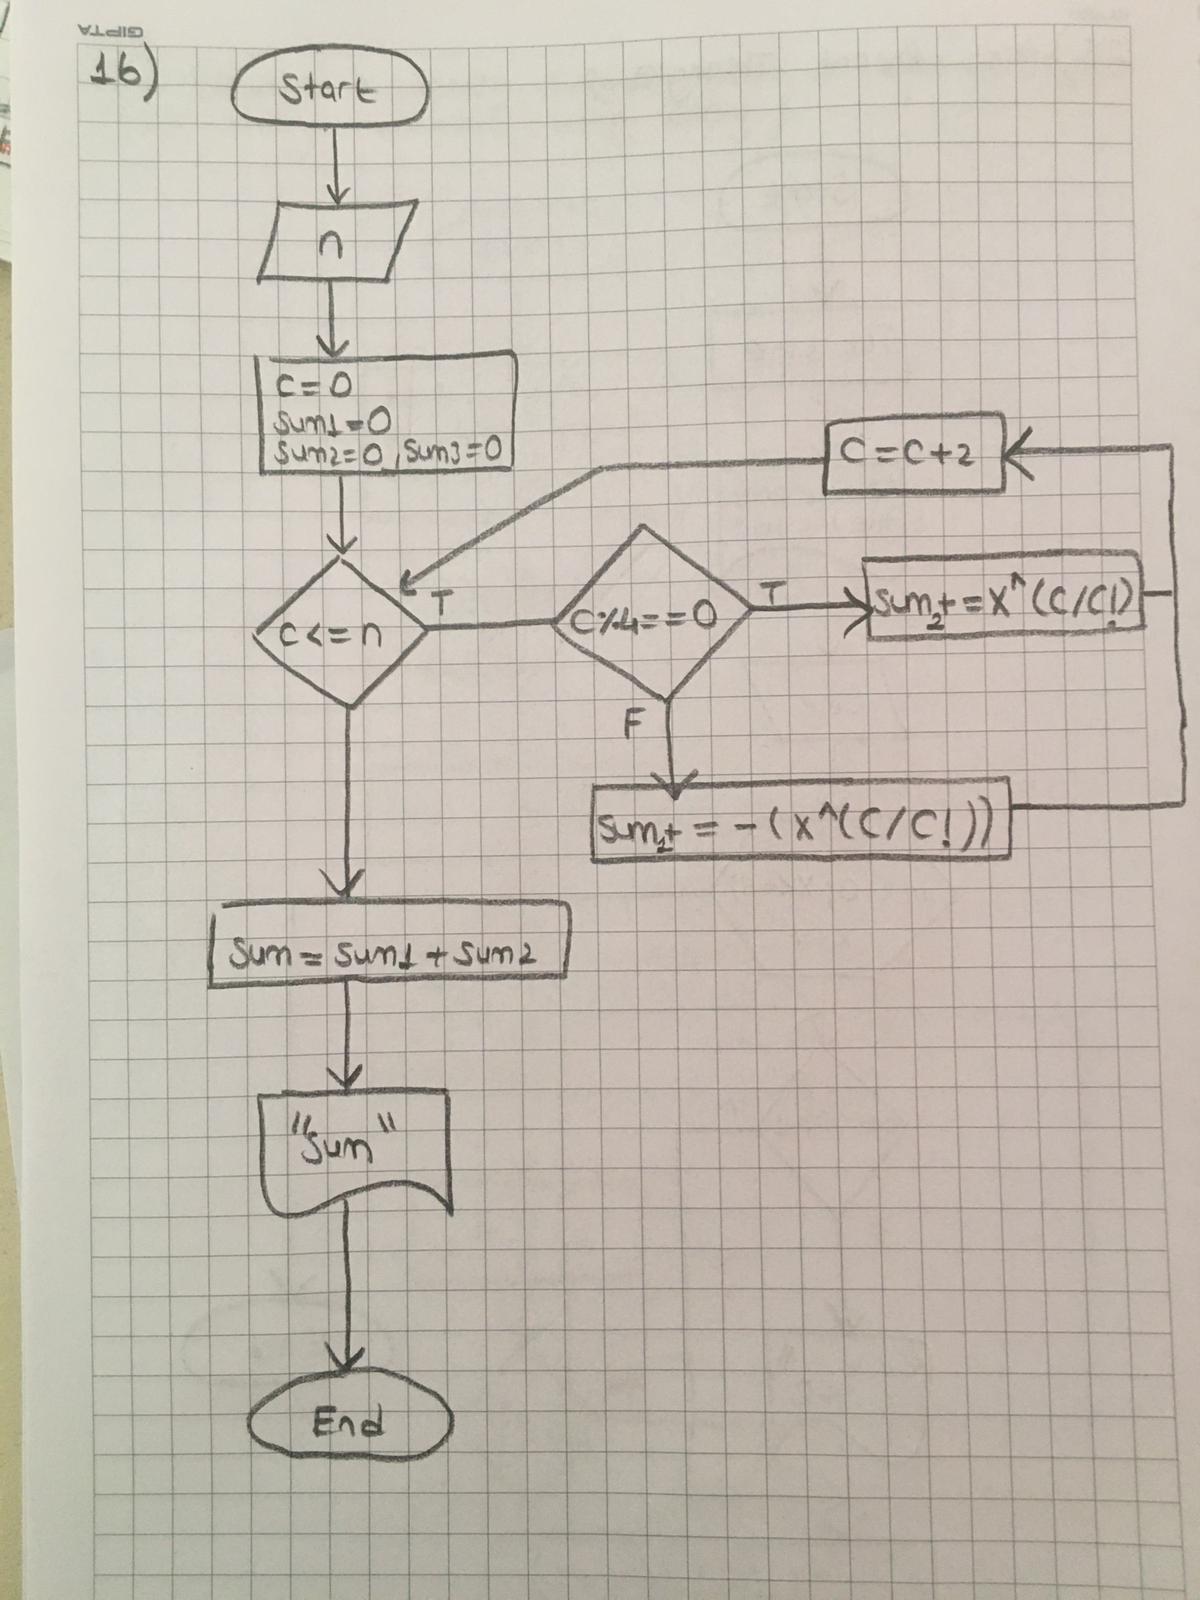 GIPTA
16)
Start
n
C=0
Sum1=0
Sum2=0, Sum3=0
C=C+2
C<=n
T
C%4==0
T
Sum2+=X^(C/C!)
F
Sum1+=-(X^(C/C!))
Sum=Sum1+Sum2
"Sum"
End